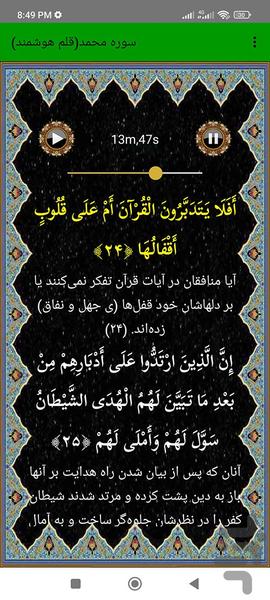 8:49 PM
سوره محمد(قلم هوشمند)
13m,47s
أَفَلَا يَتَدَبَّرُونَ الْقُرْآنَ أَمْ عَلَى قُلُوبٍ
أَقْفَالُهَا ﴿۲۴﴾
آیا منافقان در آیات قرآن تفکر نمی‌کنند یا
بر دلهاشان خود قفل‌ها (ی جهل و نفاق)
زده‌اند. (۲۴)
إِنَّ الَّذِينَ ارْتَدُّوا عَلَى أَدْبَارِهِمْ مِنْ
بَعْدِ مَا تَبَيَّنَ لَهُمُ الْهُدَى الشَّيْطَانُ
سَوَّلَ لَهُمْ وَأَمْلَى لَهُمْ ﴿۲۵﴾
آنان که پس از بیان شدن راه هدایت بر آنها
باز به دین پشت کرده و مرتد شدند شیطان
کفر را در نظرشان جلوه‌گر ساخت و به آمال